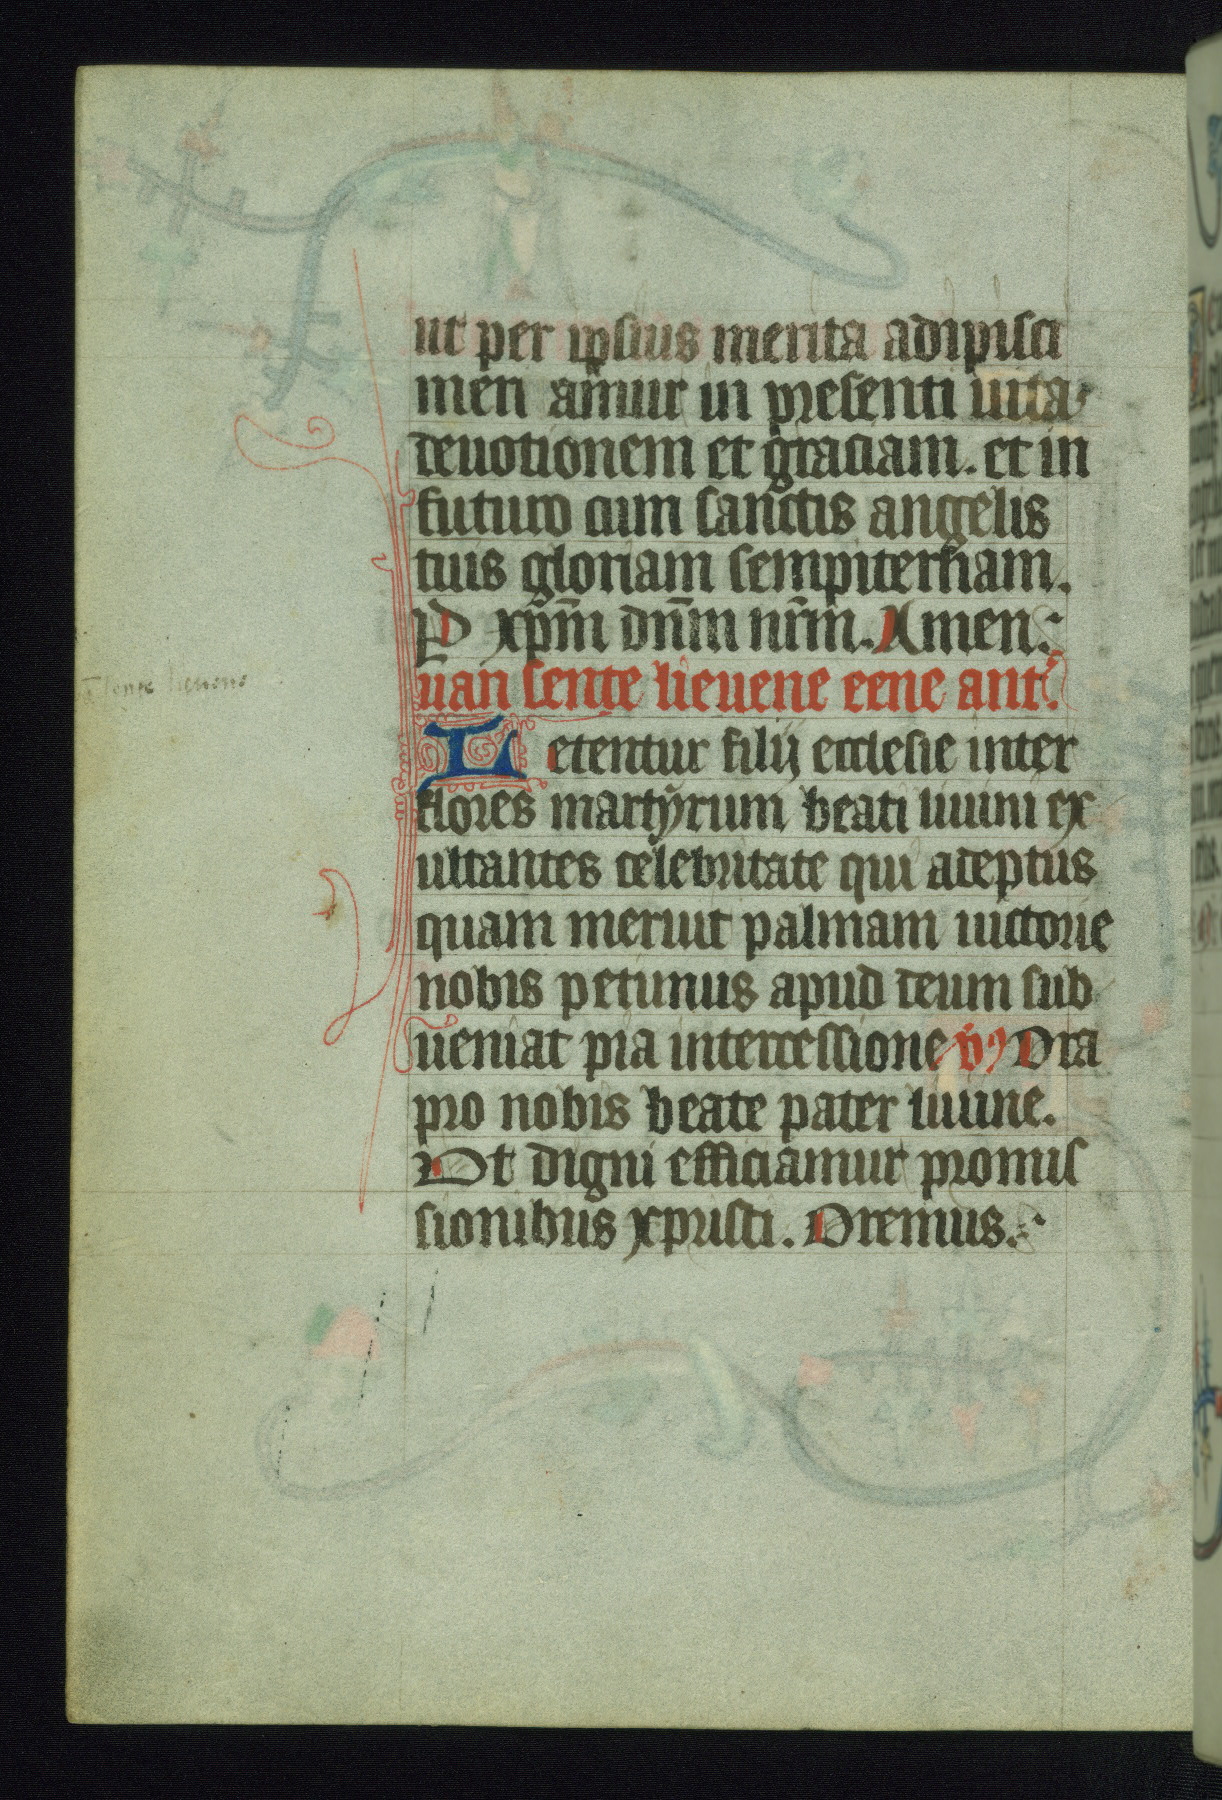 ut per ipsius merita adipisci
men amur in presenti uita
deuotionem et graciam. et in
futuro cum sanctis angelis
tuis gloriam sempiternam.
P xp̄m dn̄m nr̄m. Amen.
uan sente lieuene eene ant.
Letentur filij ecclesie inter
flores martyrum beati liuini ex
ultantes celebritate qui adeptus
quam meruit palmam uictorie
nobis petimus apud deum sub
ueniat pia intercessione v Ora
pro nobis beate pater liuine.
Vt digni efficiamur promis
sionibus xpristi. Oremus.
lieuene